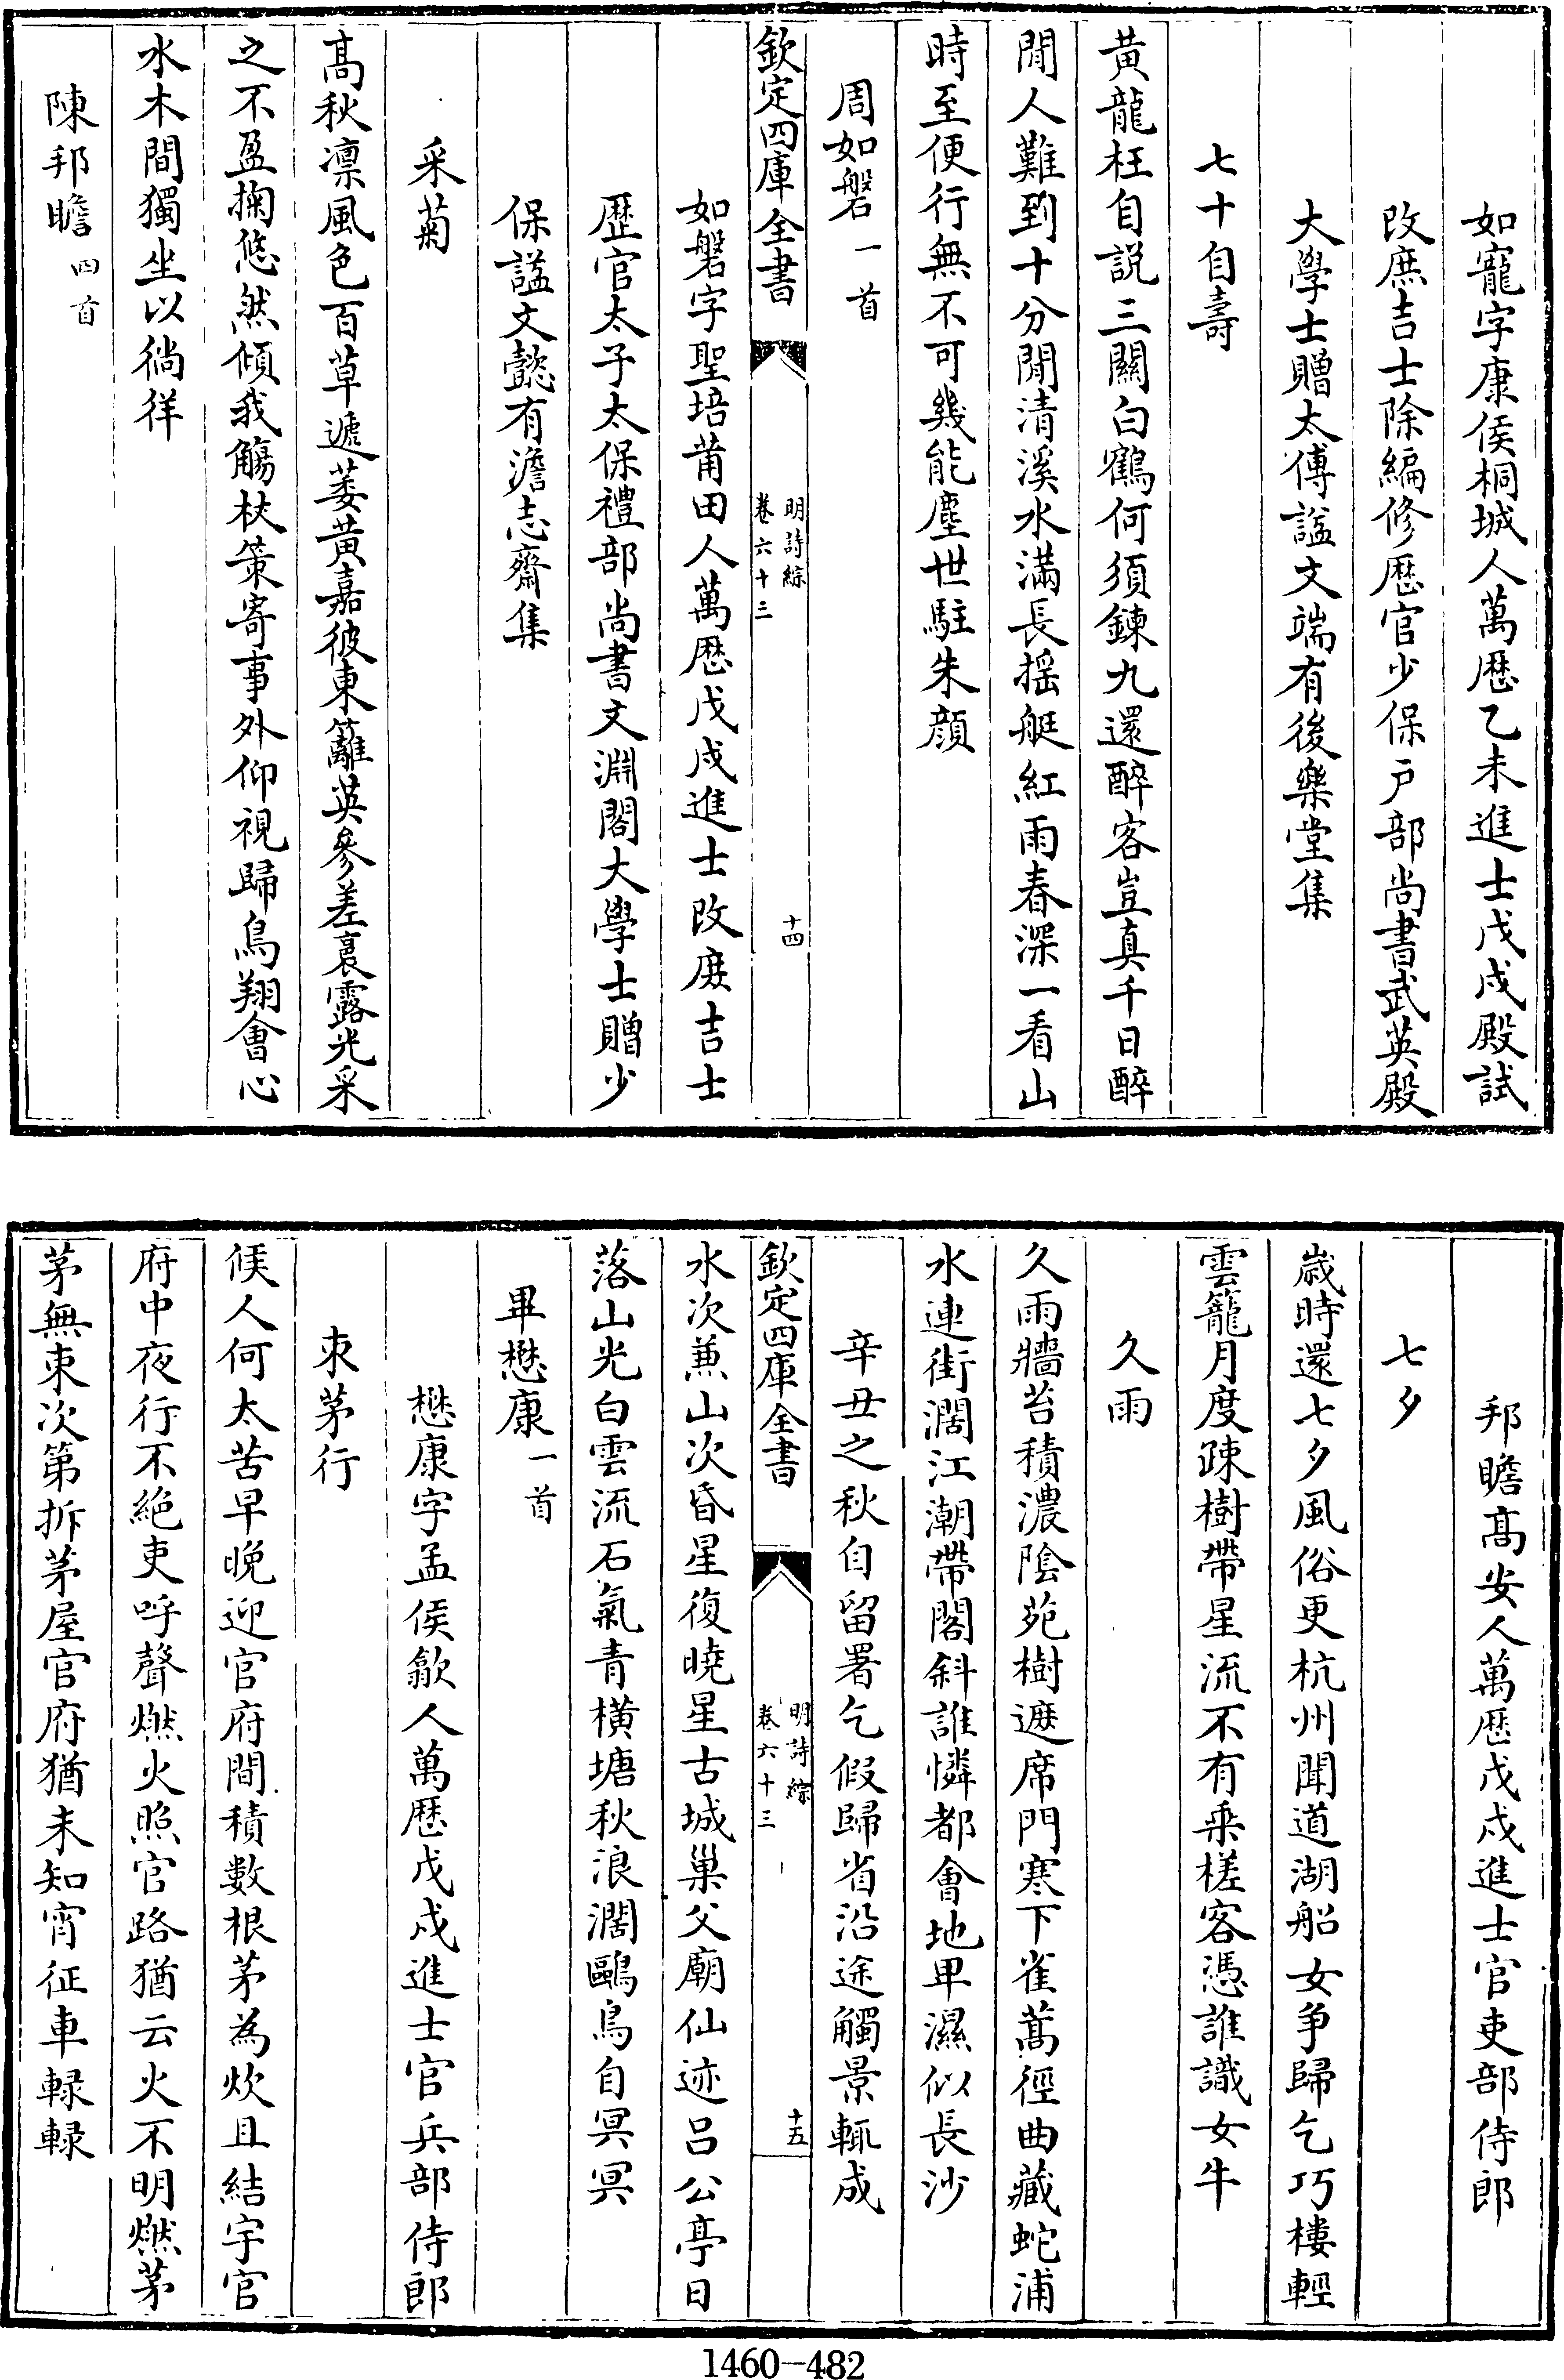 如寵字康侯桐城人萬歴乙未進士戊戌殿試
改庶吉士除編修歴官少保户部尚書武英殿
大學士贈太傅諡文端有後樂堂集
七十自壽
黄龍枉自説三關白鶴何須鍊九還醉客豈真千日醉
閒人難到十分閒清溪水滿長揺艇紅雨春深一看山
時至便行無不可幾能塵世駐朱顔
周如磐一首
欽定四庫全書
明詩綜
卷六十三
十四
如磐字聖培莆田人萬歴戊戌進士改庶吉士
歴官太子太保禮部尚書文淵閣大學士贈少
保諡文懿有澹志齋集
采菊
髙秋凛風色百草遞萎黄嘉彼東籬英參差裛露光采
之不盈掬悠然傾我觴杖策寄事外仰視歸鳥翔會心
水木間獨坐以徜徉
陳邦瞻四首
邦瞻髙安人萬歴戊戌進士官吏部侍郎
七夕
歳時還七夕風俗更杭州聞道湖船女争歸乞巧樓輕
雲籠月度疎樹帶星流不有乗槎客憑誰識女牛
久雨
久雨牆苔積濃陰苑樹遮席門寒下雀蒿徑曲藏蛇浦
水連街濶江潮帶閣斜誰憐都會地卑濕似長沙
辛丑之秋自留署乞假歸省沿途觸景輒成
欽定四庫全書
明詩綜
卷六十三
十五
水次兼山次昏星復曉星古城巢父廟仙迹吕公亭日
落山光白雲流石氣青横塘秋浪濶鷗鳥自冥冥
畢懋康一首
懋康字孟侯歙人萬歴戊戌進士官兵部侍郎
束茅行
候人何太苦早晚迎官府間積數根茅為炊且結宇官
府中夜行不絶吏呼聲燃火照官路猶云火不明燃茅
茅無束次第拆茅屋官府猶未知宵征車轆轆
1460—482